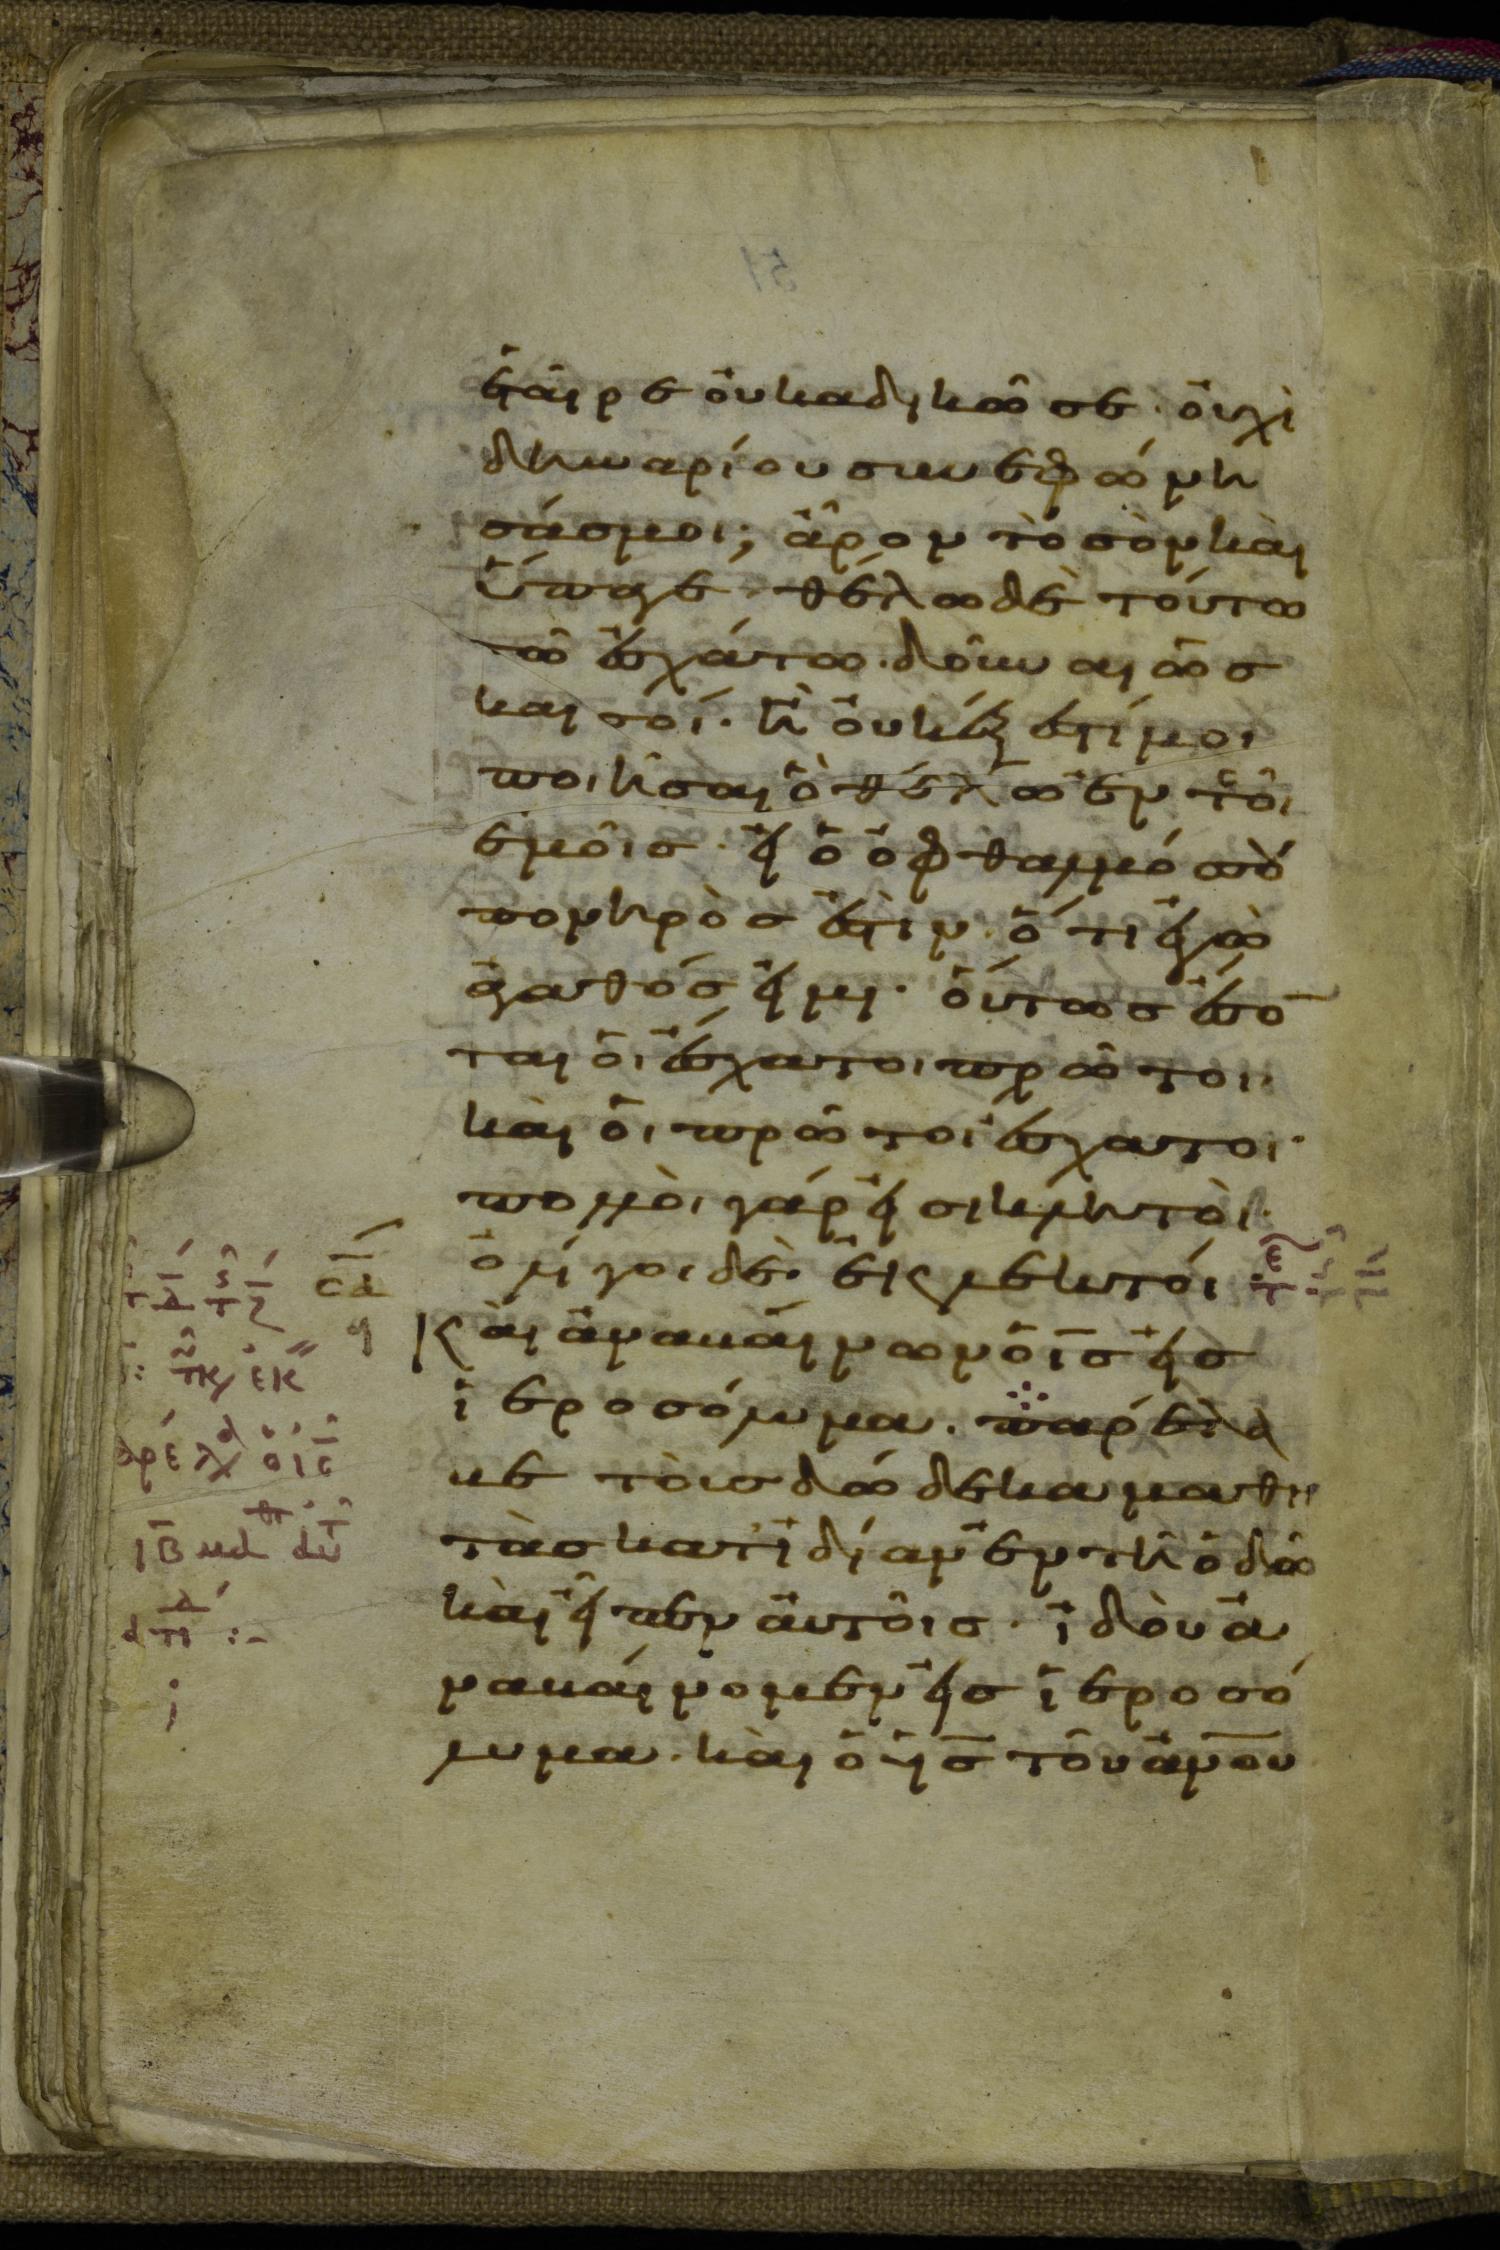 ἑταῖρε οὐκ ἀδικῶ σε· οὐχὶ
δηναρίου συνεφώνη
σάς μοι; ἆρον τὸ σὸν καὶ
ὕπαγε· θέλω δὲ τούτω
τῶ ἐσχάτω δοῦναι ὡς
καὶ σοί· ἢ οὐκ ἔξεστί μοι
ποιῆσαι ὃ θέλω ἐν τοῖς
ἐμοῖς· εἰ ὁ ὀφθαλμός σου
πονηρός ἐστιν· ὅτι ἐγὼ
ἀγαθός εἰμι· οὕτως ἔσο̄
ται οἱ ἔσχατοι πρῶτοι·
καὶ οἱ πρῶτοι ἔσχατοι·
πολλοὶ γάρ εἰσι κλητοὶ·
ὀλίγοι δὲ ἐκλεκτοί
Καὶ ἀναβαίνων ὁ ι̅ς̅ εἰς
ἱεροσόλυμα· παρέλα
βε τοὺς δώδεκα μαθη
τὰς κατ' ἰδίαν ἐν τῆ ὁδῶ
καὶ εἶπεν αὐτοῖς· ἰδοὺ ἀ
ναβαίνομεν εἰς ἱεροσό
λυμα· καὶ ὁ υ̅ς̅ τοῦ α̅ν̅ο̅υ̅
σα